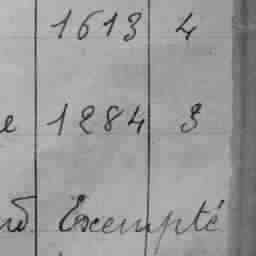 1613 4
e 1284 3
Exempté